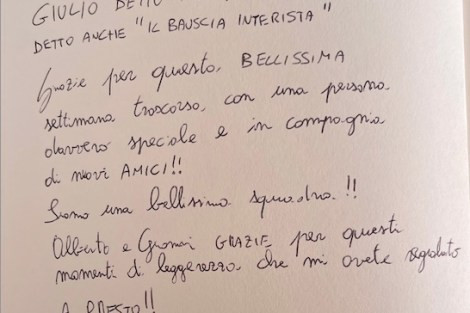 GIULIO DETTO
DETTO ANCHE "IL BAUSCIA INTERISTA"
Grazie per questa BELLISSIMA
settimana trascorsa, con una persona
davvero speciale e in compagnia
di nuovi AMICI!!
Siamo una bellissima squadra!!
Alberto e GRAZIE per questi
momenti di leggerezza che mi avete regalato
A PRESTO!!